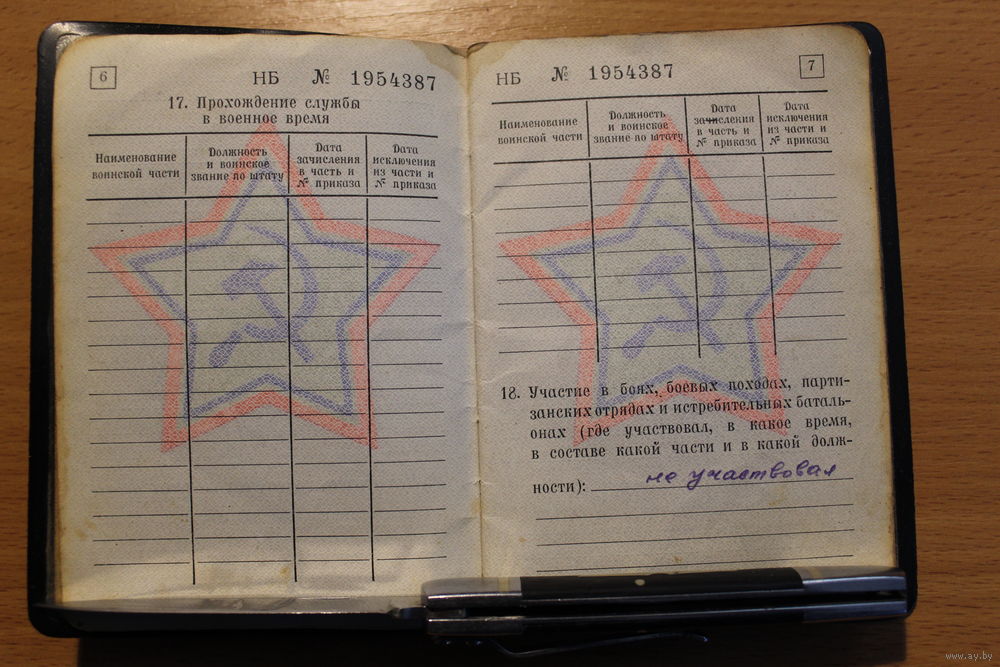 6
НБ № 1954387
17. Прохождение службы
в военное время
Наименование
воинской части
Должность
и воинское
звание по штату
Дата
зачисления
в часть и
№ приказа
Дата
исключения
из части и
№ приказа
НБ № 1954387
7
Наименование
воинской части
Должность
и воинское
звание по штату
Дата
зачисления
в часть и
№ приказа
Дата
исключения
из части и
№ приказа
18. Участие в боях, боевых походах, парти-
занских отрядах и истребительных баталь-
онах (где участвовал, в какое время,
в составе какой части и в какой долж-
ности): не участвовал
www.ay.by